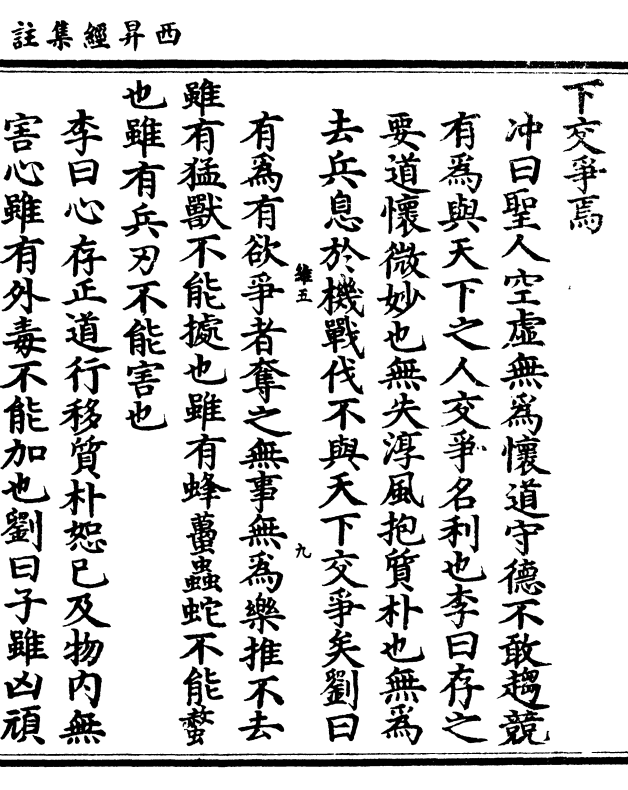 西昇經集註
下交爭焉
冲曰聖人空虛無爲懷道守德不敢趨競
有爲與天下之人交爭名利也李曰存之
要道懷微妙也無失淳風抱質朴也無爲
去兵息於機戰伐不與天下交爭矣劉曰
維五
九
有爲有欲爭者奪之無事無爲樂推不去
雖有猛獸不能據也雖有蜂蠆蟲蛇不能螫
也雖有兵刃不能害也
李曰心存正道行移質朴恕已及物內無
害心雖有外毒不能加也劉曰子雖凶頑